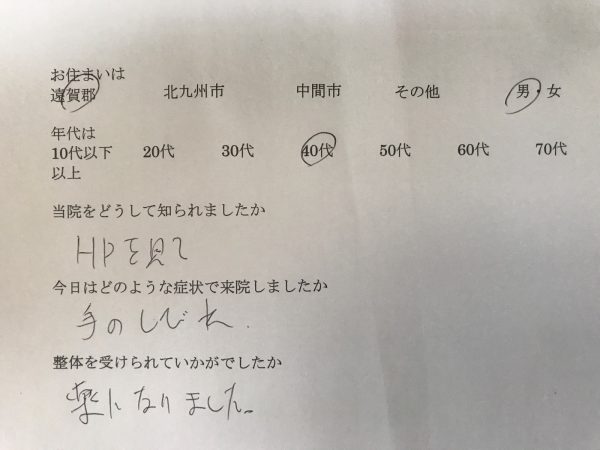 お住まいは
遠賀郡 北九州市 中間市 その他 男・女
年代は
10代以下 20代 30代 40代 50代 60代 70代
以上
当院をどうして知られましたか
HPを見て
今日はどのような症状で来院しましたか
手のしびれ.
整体を受けられていかがでしたか
楽になりました。